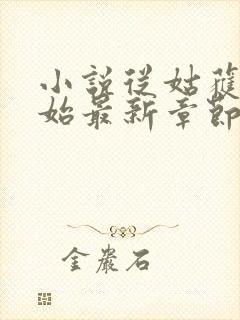 小說從姑蘇開
始最新章節
金巖石